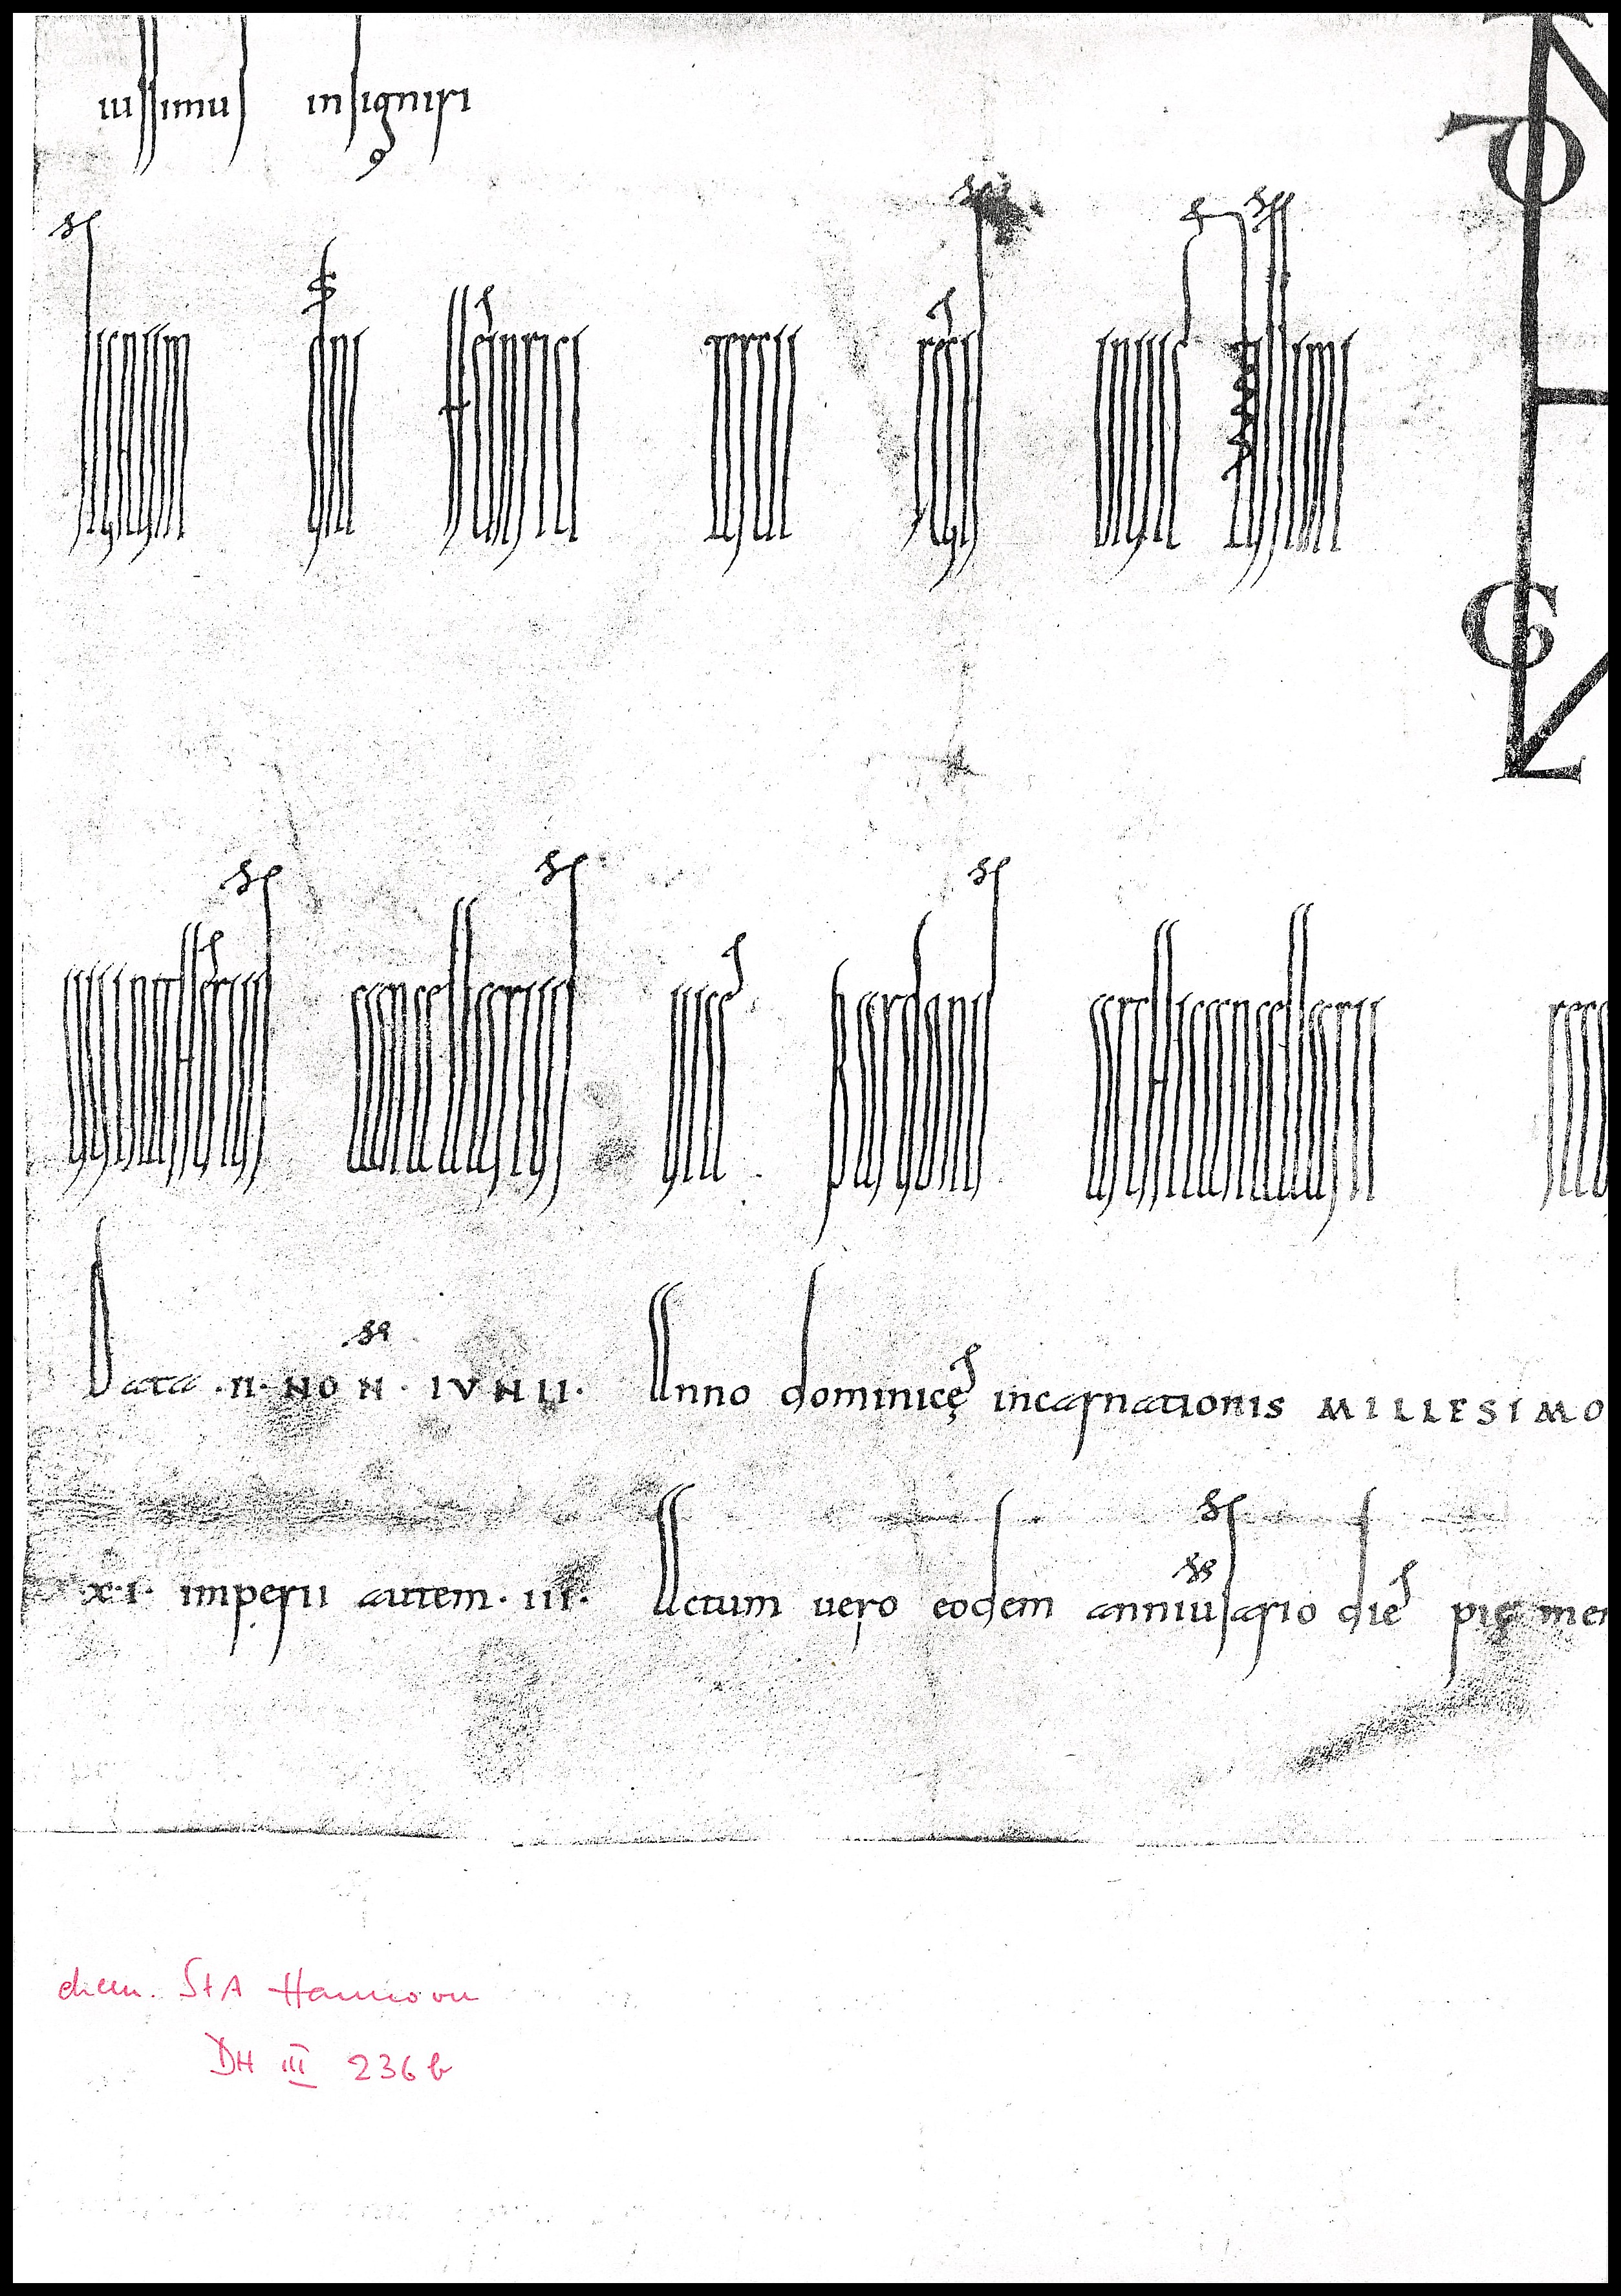 iussimus insigniri
Signum dni Heinrici tercii regis inuictissimi
Uuinitherius cancellarius uice Bardonis archicancellarii reco
Data .II. NON. IVNII. Anno dominicę incarnationis MILLESIMO
XI. imperii autem .III. Actum uero eodem anniusario die pię mem
ehem. StA Hannover
DH III 236 b